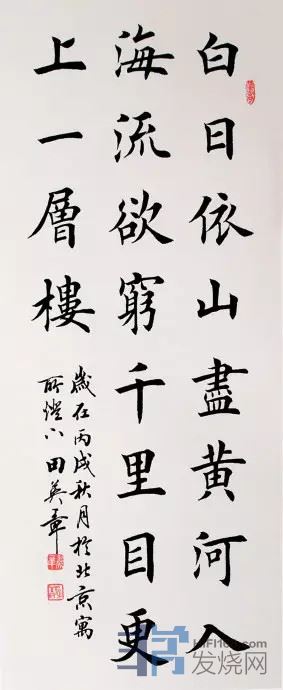 白日依山盡黄河入
海流欲窮千里目更
上一層樓
歲在丙戌秋月於北京寓
所燈下田英章
HIFI168.com
发烧网